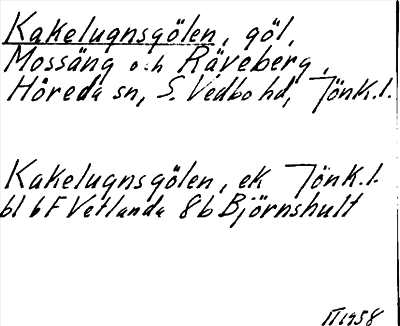 Kakelugnsgölen, göl,
Mossäng och Räveberg,
Höreda sn, S. Vedbo hd, Jönk.l.
Kakelugnsgölen, ek Jönk.l.
bl 6F Vetlanda 8b Björnshult
II 1958